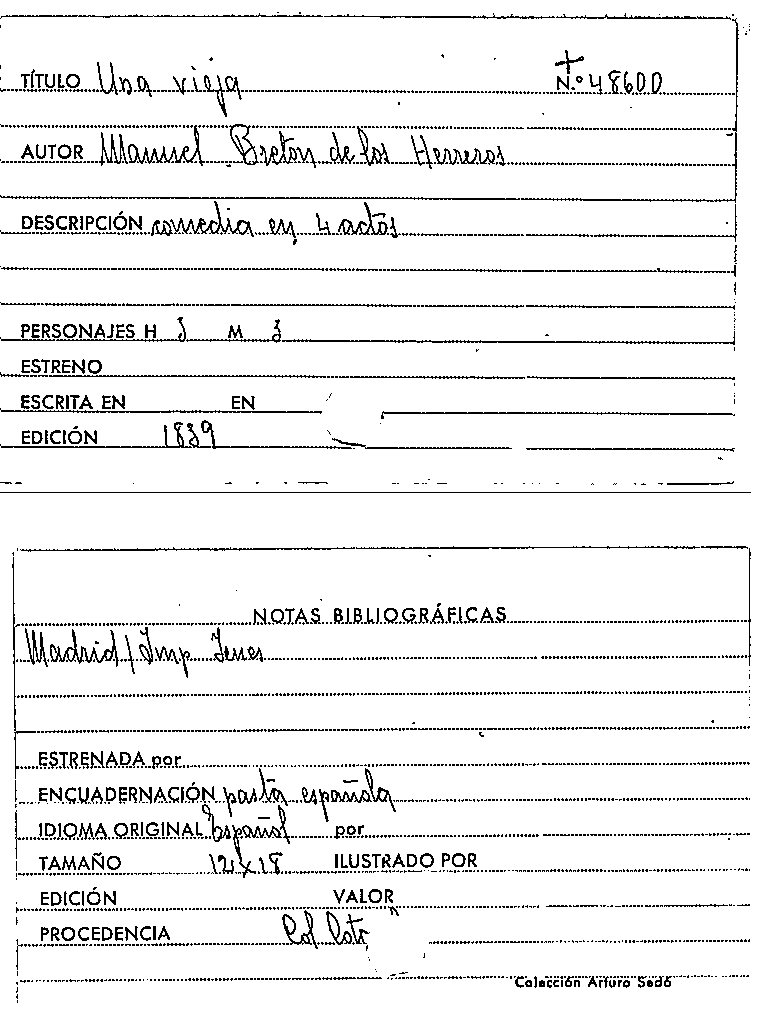 TÍTULO Una vieja
N.º 48600
AUTOR Manuel Breton de los Herreros
DESCRIPCIÓN comedia en 4 actos
PERSONAJES H M 3
ESTRENO
ESCRITA EN EN
EDICIÓN 1839
NOTAS BIBLIOGRÁFICAS
Madrid / Imp Yenes
ESTRENADA por
ENCUADERNACIÓN pasta española
IDIOMA ORIGINAL Español por
TAMAÑO 12x18 ILUSTRADO POR
EDICIÓN VALOR
PROCEDENCIA Col Cotr
Colección Arturo Sedó